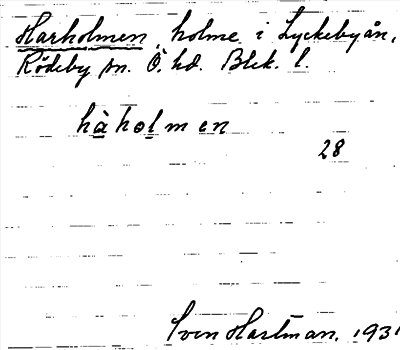 Harholmen, holme i Lyckebyån,
Rödeby sn. Ö. hd. Blek. l.
hàholmen
28
Sven Hartman, 1931